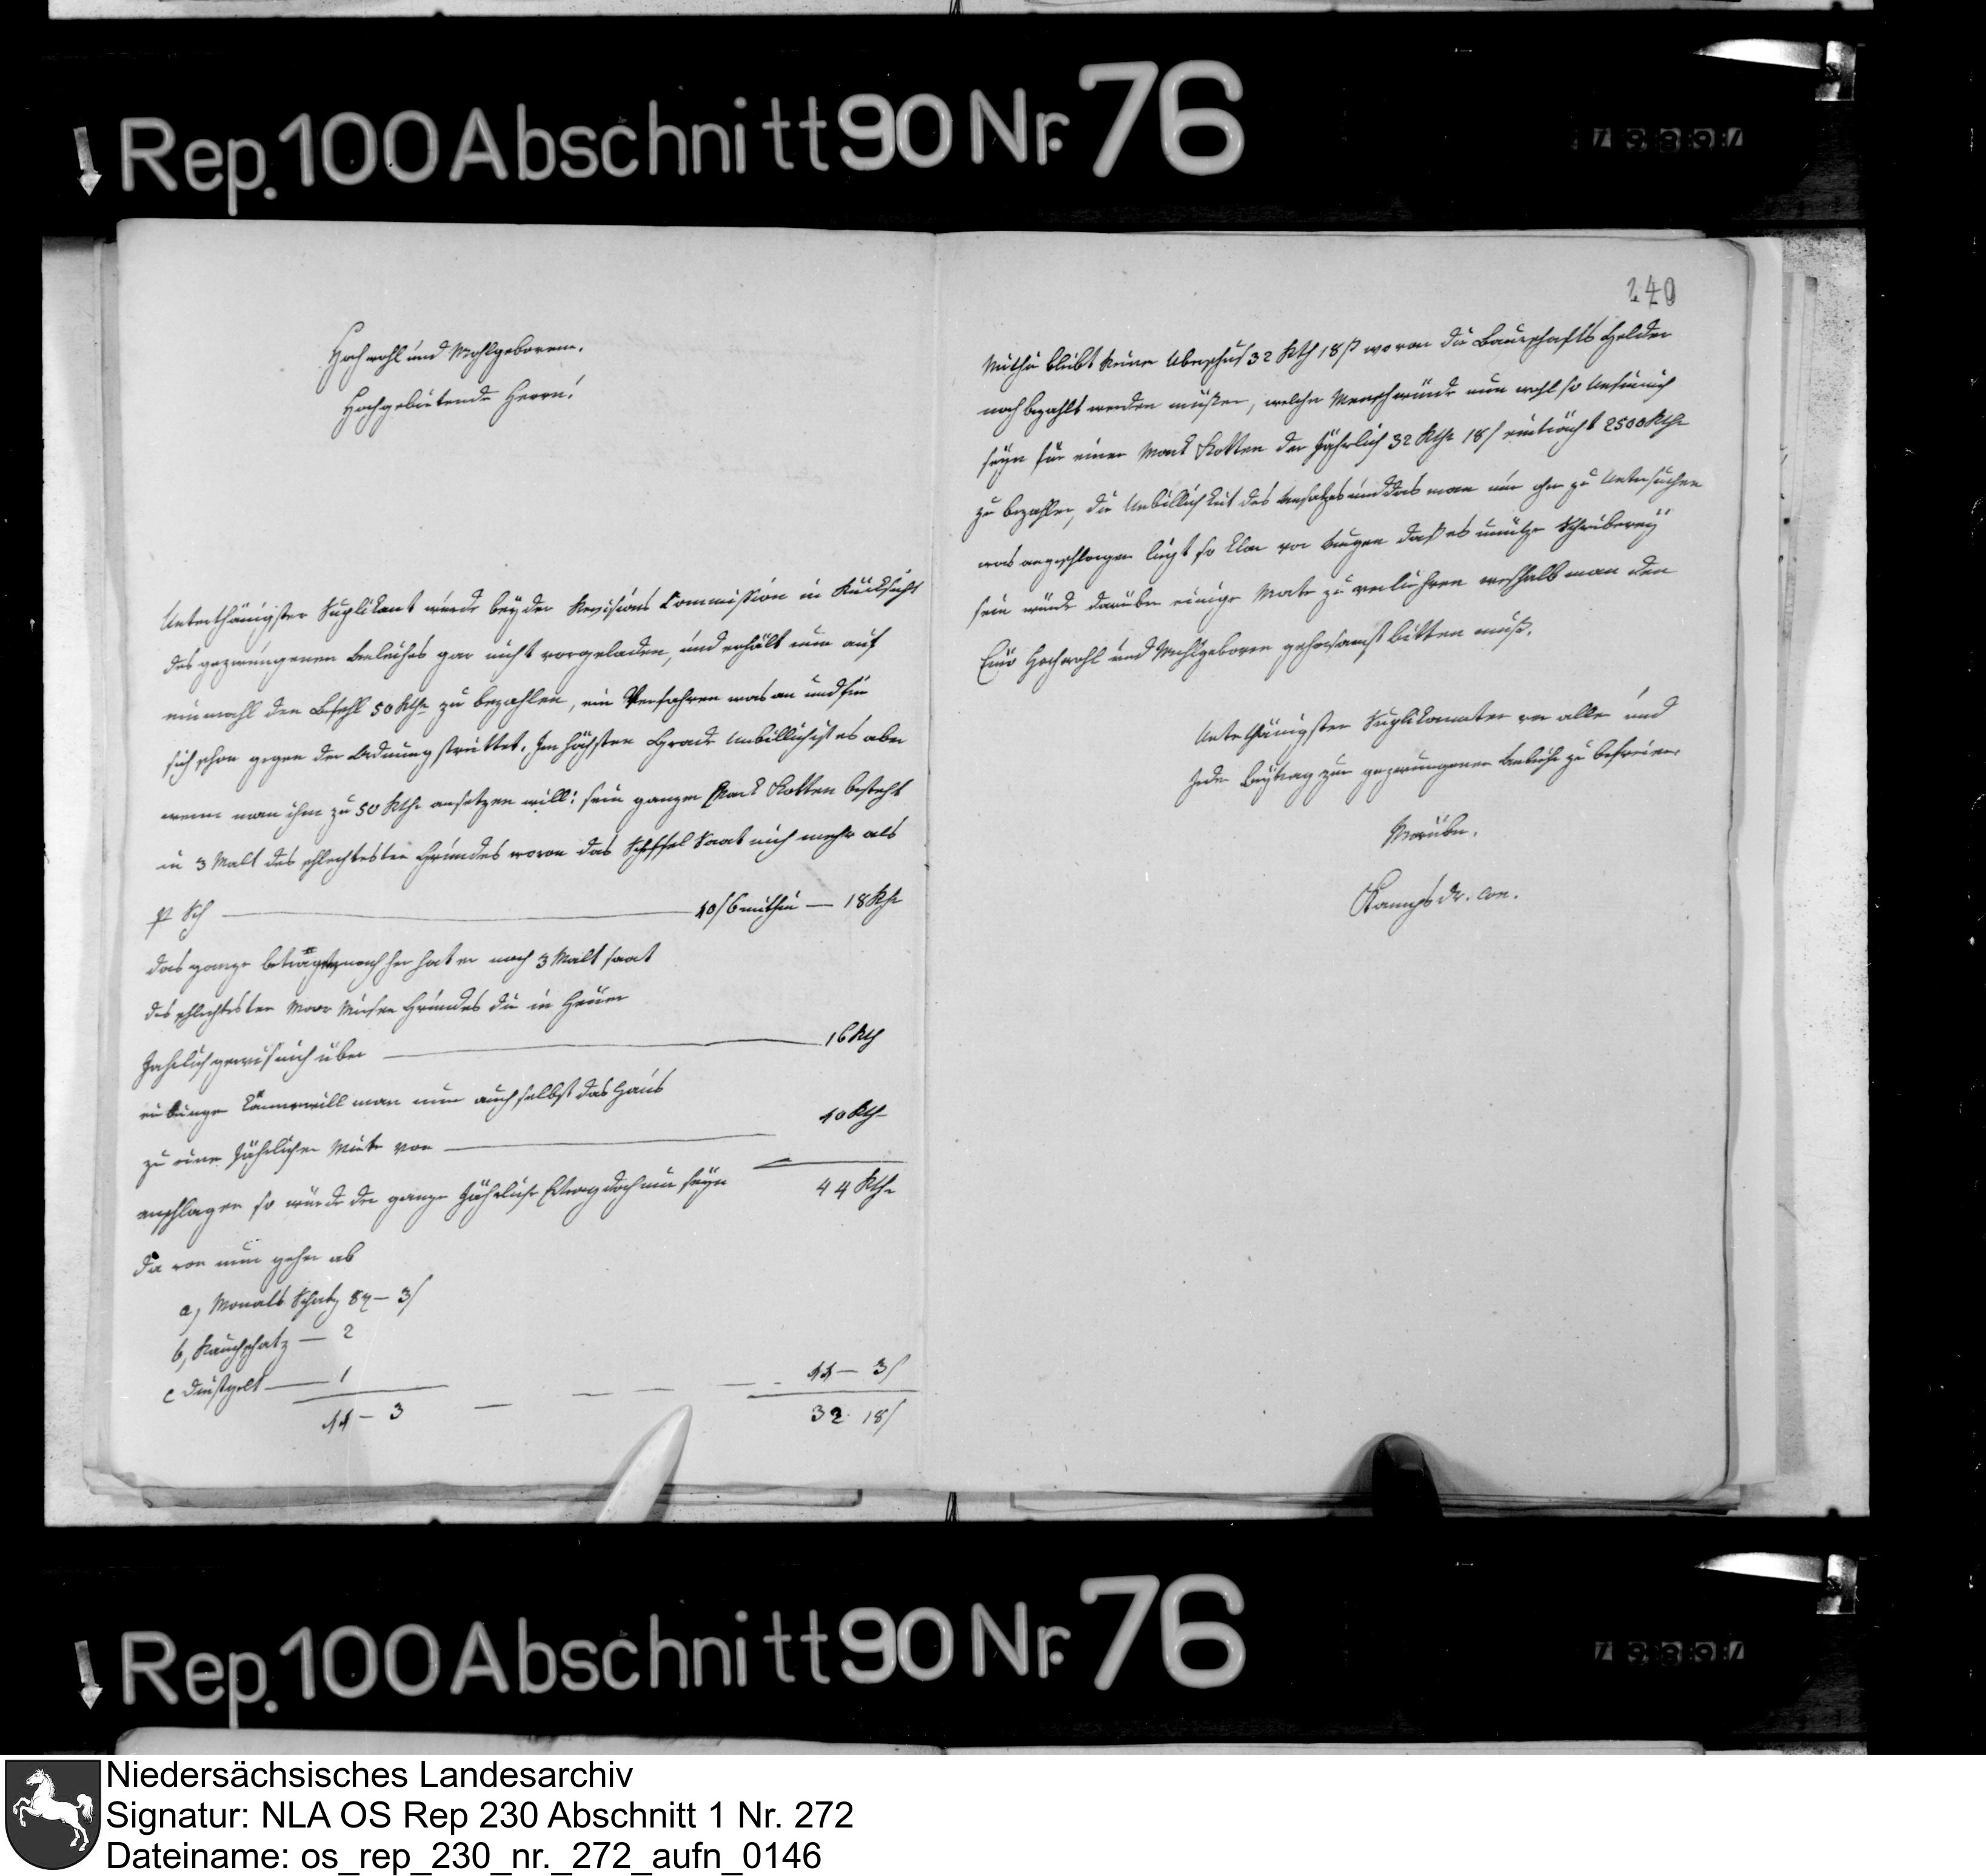 Rep. 100 Abschnitt 90 Nr. 76
Hochwohl und Wohlgeborene,
Hochgebietende Herrn!
Unterthänigster Suplikant wurde bey der Revisions Commission in Rücksicht
des gezwungenen Anleihes gar nicht vorgeladen, und erhält nun auf
einmahl den Befehl 50 Rthr zu bezahlen, ein Verfahren was an und für
sich schon gegen der Ordnung streittet. Im höchsten Grade unbillich ist es aber
wenn man ihm zu 50 Rthr ansetzen will: sein ganzer Mark Kotten besteht
in 3 Malt des schlechtesten Grundes wovon das Scheffel Saat nich mehr als
pr Sch — 10 ß 6 mithin — 18 Rthr
das ganze beträgt, nachher hat er noch 3 Malt saat
des schlechtesten Moor Wiesen Grundes die in Heuer
Jahrlich gewis nich über — 16 Rth
einbringen kann will man nun auch selbst das Haus
zu einer Jährlichen Miete von — 10 Rth
anschlagen so würde der ganze Jährliche Ertrag doch nur seyn 44 Rthr
da von nun gehen ab
a, Monats Schatz 8 — 3 ß
b, Rauchschatz — 2
c Dienstgelt — 1 11 — 3 ß
11 — 3 — 32 18 ß
240
Mithin bleibt keiner Uberschus 32 Rth 18 ß wovon die Bauerschafts Gelder
noch bezahlt werden müßen, welcher Mensch würde nun wohl so Unsinnich
seyn für einen Mark Kotten der Jährlich 32 Rthr 18 ß einträcht 2500 Rthr
zu bezahlen, die Unbillichkeit des Ansatzes und das man nur ohne zu Untersuchen
was angeschlagen liegt so klar vor Augen daß es unnütze Schreiberey
sein würde darüber einige Worte zu verliehren weshalb man den
Euer Hochwohl und Wohlgeboren gehorsamst bitten muß.
Unterthänigsten Suplikannten von allen und
Jeden Beytrag zur gezwungenen Anleihe zu befreien.
Worüber.
Kamps Dr. con.
Rep. 100 Abschnitt 90 Nr. 76
Niedersächsisches Landesarchiv
Signatur: NLA OS Rep 230 Abschnitt 1 Nr. 272
Dateiname: os_rep_230_nr._272_aufn_0146